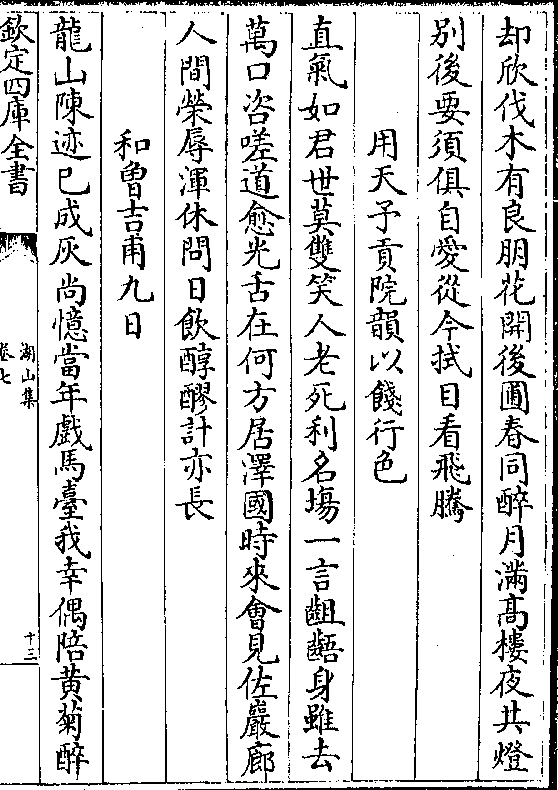 却欣伐木有良朋花開後圃春同醉月滿高樓夜共燈
别後要須俱自愛從今拭目看飛騰
用天予貢院韻以餞行色
直氣如君世莫雙笑人老死利名塲一言齟齬身雖去
萬口咨嗟道愈光舌在何方居澤國時來會見佐巖廊
人間榮辱渾休問日飲醇醪計亦長
和魯吉甫九日
龍山陳迹已成灰尚憶當年戲馬臺我幸偶陪黄菊醉
欽定四庫全書
湖山集
卷七
十三